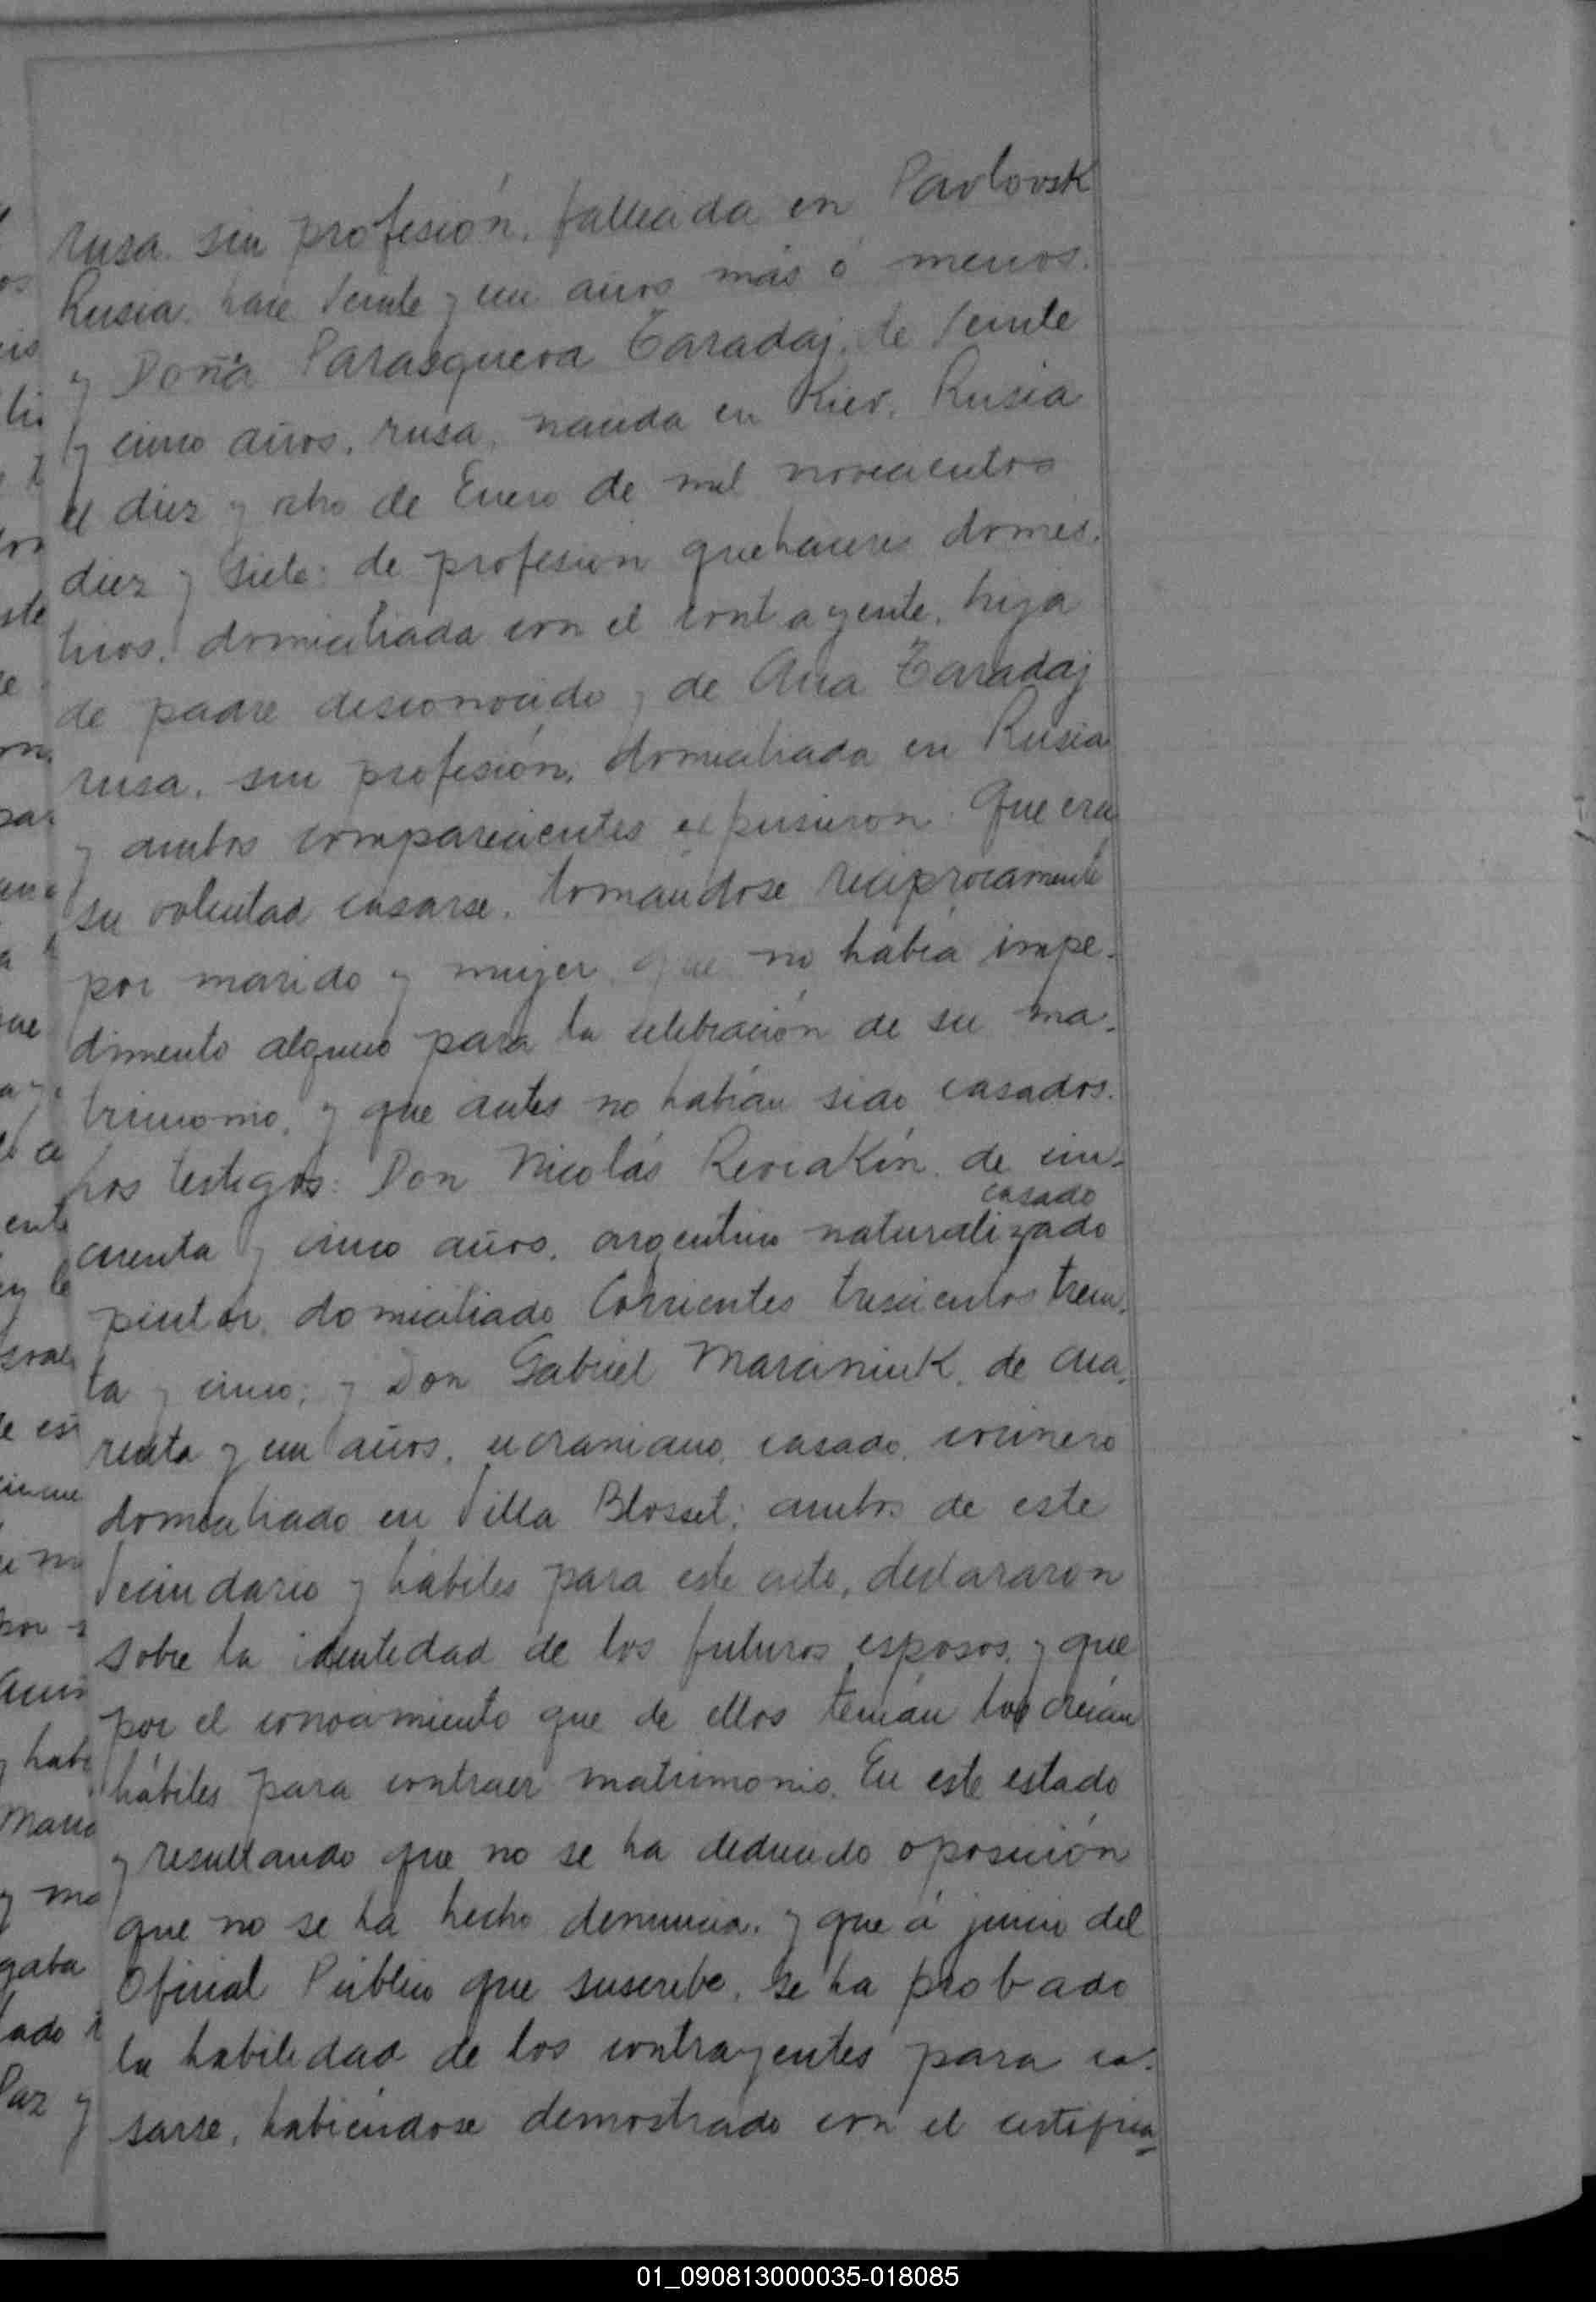 rusa. sin profesión, fallecida en Pavlovsk
Rusia. hace veinte y un años más ó menos.
y Doña Parasqueva Taradaj, de veinte
y cinco años, rusa, nacida en Kiev, Rusia
el diez y ocho de Enero de mil novecientos
diez y siete: de profesión quehaceres domés-
ticos, domiciliada con el contayente, hija
de padre desconocido y de Ana Taradaj
rusa, sin profesión, domiciliada en Rusia
y ambos comparecientes expusieron: Que era
su voluntad casarse, tomándose recíprocamente
por marido y mujer, que no había impe-
dimento alguno para la celebración de su ma-
trimonio, y que antes no habían sido casados.
Los testigos: Don Nicolás Reviakin, de cin-
casado
cuenta y cinco años, argentino naturalizado
pintor, domiciliado Corrientes trescientos trein-
ta y cinco; y Don Gabriel Marciniuk, de cua-
renta y un años, ucraniano, casado, cocinero
domiciliado en Villa Blosset; ambos de este
vecindario y hábiles para este acto, declararon
sobre la identidad de los futuros esposos, y que
por el conocimiento que de ellos tenían los creían
hábiles para contraer matrimonio. En este estado
y resultando que no se ha deducido oposición
que no se ha hecho denuncia, y que á juicio del
Oficial Público que suscribe, se ha probado
la habilidad de los contrayentes para ca-
sarse, habiéndose demostrado con el certifica-
01_090813000035-018085